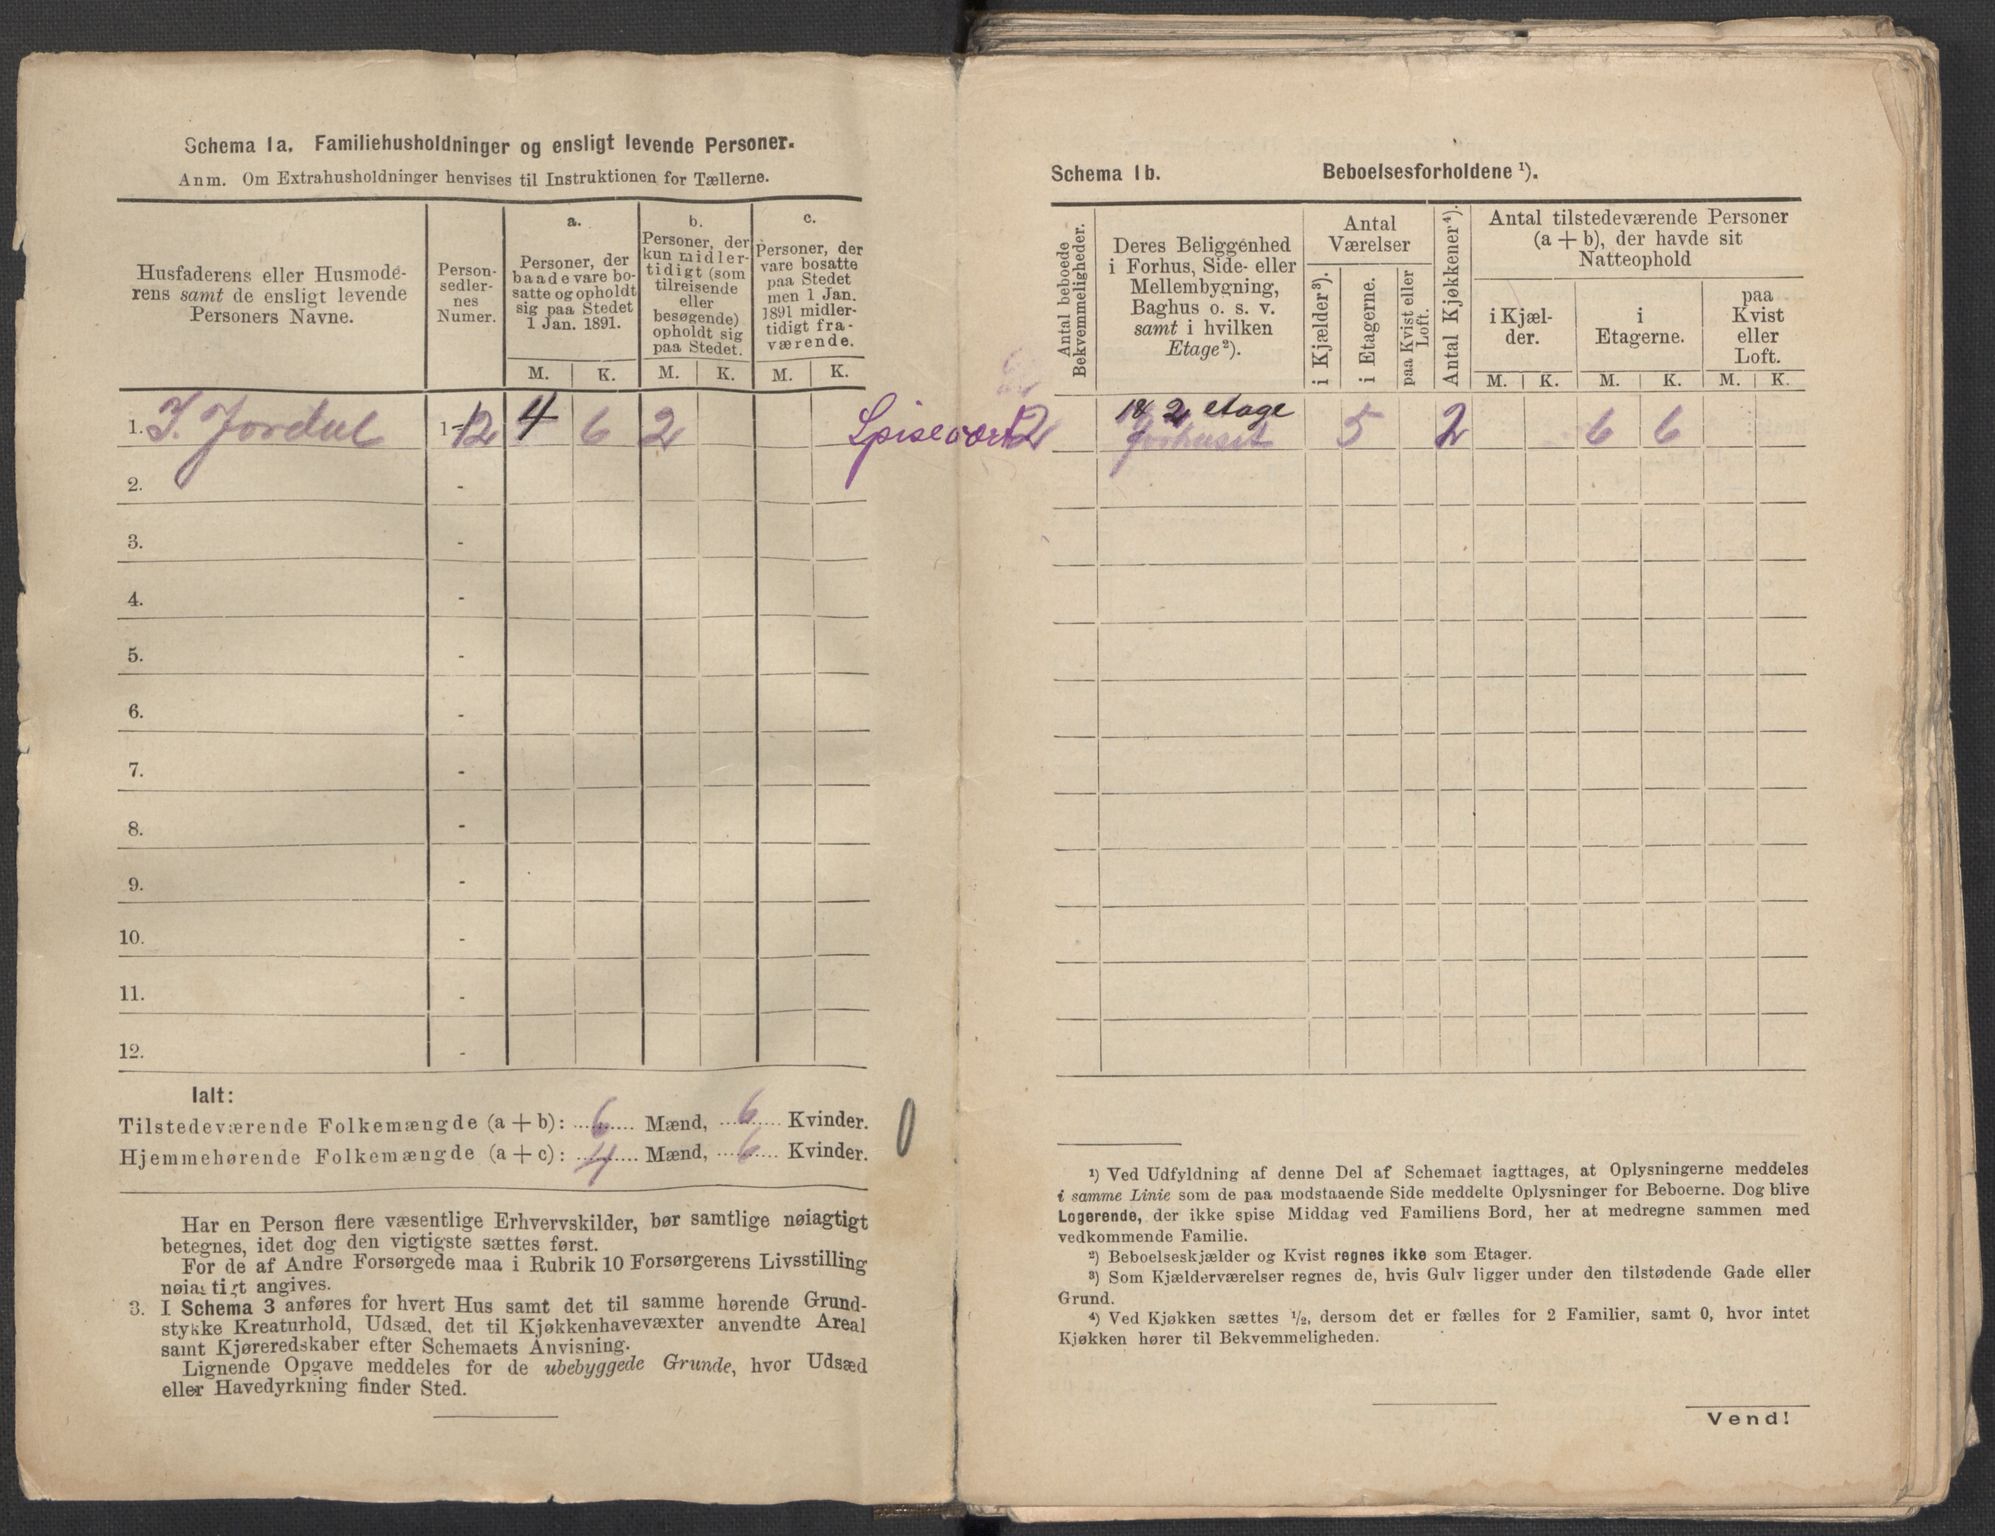 Schema 1a. Familiehusholdninger og ensligt levende Personer.
Anm. Om Extrahusholdninger henvises til Instruktionen for Tællerne.
Husfaderens eller Husmode-
rens samt de ensligt levende
Personers Navne.
Person-
sedler-
nes
Numer.
a.
Personer, der
baade vare bo-
satte og opholdt
sig paa Stedet
1 Jan. 1891.
b.
Personer, der
kun midler-
tidigt (som
tilreisende
eller
besøgende)
opholdt sig
paa Stedet.
c.
Personer, der
vare bosatte
paa Stedet
men 1 Jan.
1891 midler-
tidigt fra-
værende.
M. K. M. K. M. K.
1. I. Jordal 1-12 4 6 2
2. -
3. -
4. -
5. -
6. -
7. -
8. -
9. -
10. -
11. -
12. -
Ialt:
Tilstedeværende Folkemængde (a + b): 6 Mænd, 6 Kvinder.
Hjemmehørende Folkemængde (a + c): 4 Mænd, 6 Kvinder.
0
Har en Person flere væsentlige Erhvervskilder, bør samtlige nøiagtigt
betegnes, idet dog den vigtigste sættes først.
For de af Andre Forsørgede maa i Rubrik 10 Forsørgerens Livsstilling
nøiagtigt angives.
3. I Schema 3 anføres for hvert Hus samt det til samme hørende Grund-
stykke Kreaturhold, Udsæd, det til Kjøkkenhavevæxter anvendte Areal
samt Kjøreredskaber efter Schemaets Anvisning.
Lignende Opgave meddeles for de ubebyggede Grunde, hvor Udsæd
eller Havedyrkning finder Sted.
Schema 1b. Beboelsesforholdene ¹).
Antal beboede
Bekvemmeligheder.
Deres Beliggenhed
i Forhus, Side- eller
Mellembygning,
Baghus o. s. v.
samt i hvilken
Etage²).
Antal
Værelser
i Kjælder³).
i Etagerne.
paa Kvist eller
Loft.
Antal Kjøkkener⁴).
Antal tilstedeværende Personer
(a + b), der havde sit
Natteophold
i Kjæl-
der.
i
Etagerne.
paa
Kvist
eller
Loft.
M. K. M. K. M. K.
Spisevært 2 1&2 etage
Forhuset 5 2 6 6
¹) Ved Udfyldning af denne Del af Schemaet iagttages, at Oplysningerne meddeles
i samme Linie som de paa modstaaende Side meddelte Oplysninger for Beboerne. Dog blive
Logerende, der ikke spise Middag ved Familiens Bord, her at medregne sammen med
vedkommende Familie.
²) Beboelseskjælder og Kvist regnes ikke som Etager.
³) Som Kjælderværelser regnes de, hvis Gulv ligger under den tilstødende Gade eller
Grund.
⁴) Ved Kjøkken sættes ½, dersom det er fælles for 2 Familier, samt 0, hvor intet
Kjøkken hører til Bekvemmeligheden.
Vend!